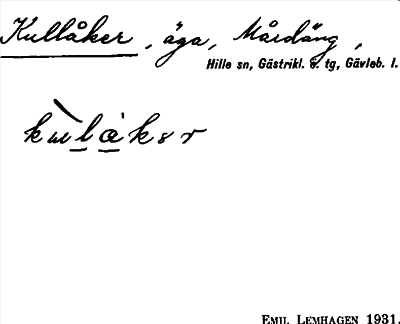 Kullåker, äga, Mårdäng,
Hille sn, Gästrikl. ö. tg, Gävleb. l.
EMIL LEMHAGEN 1931.